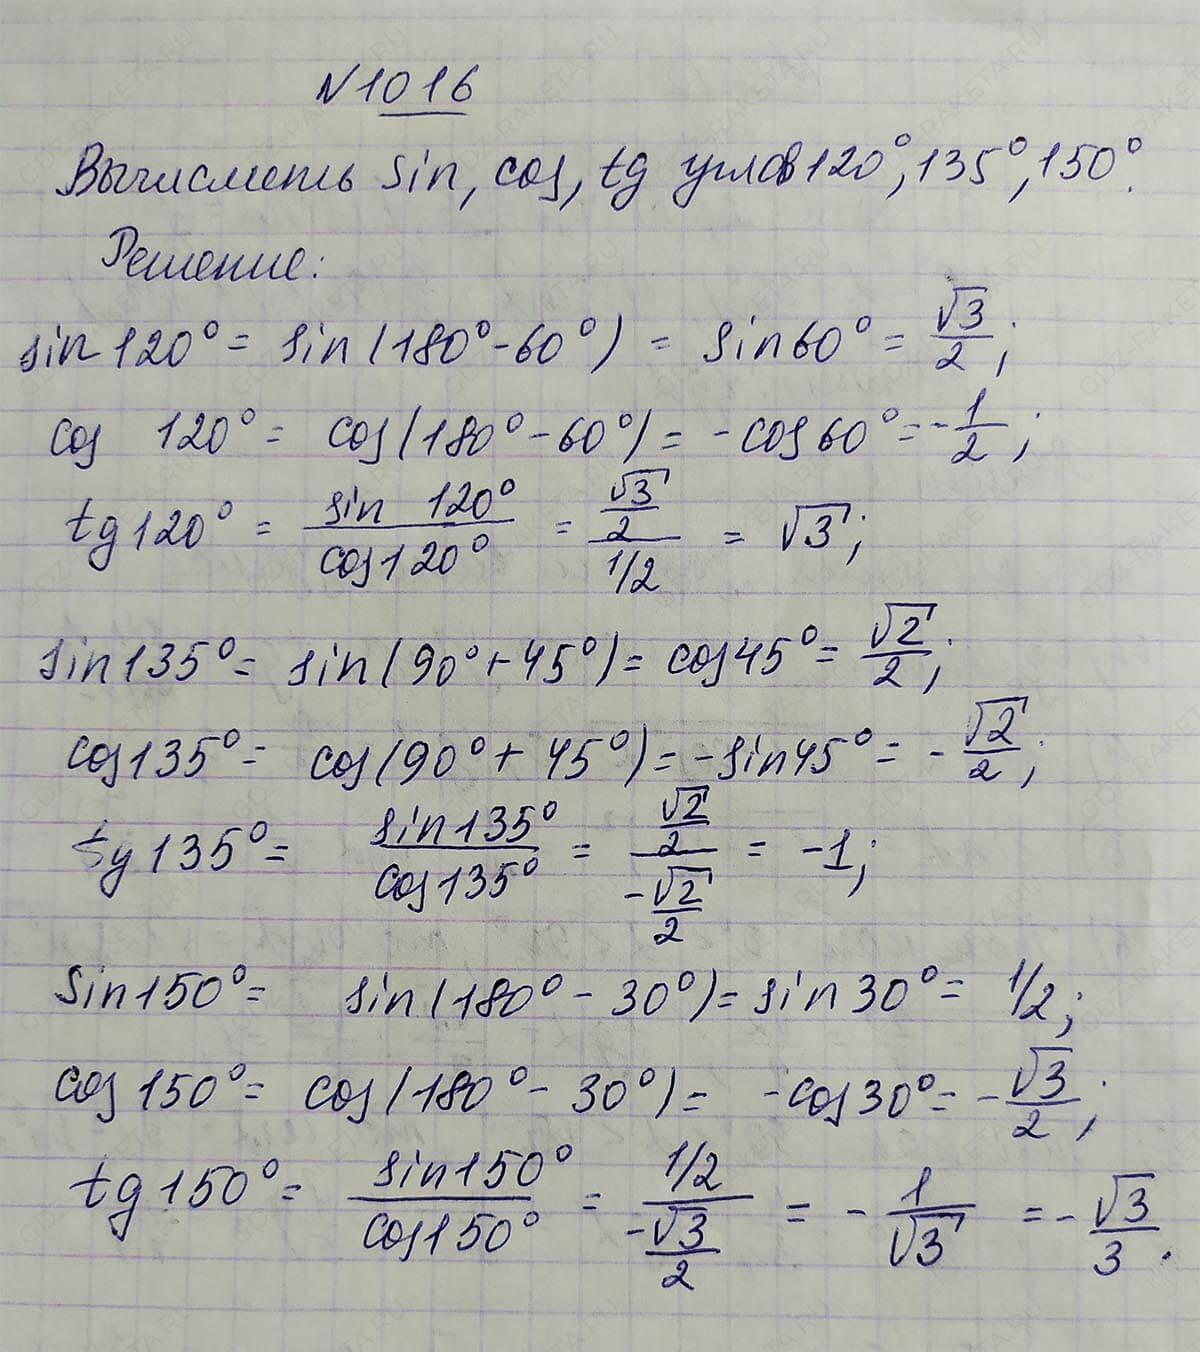 N1016
Вычислить sin, cos, tg углов 120°, 135°, 150°.
Решение:
sin 120° = sin(180° - 60°) = sin 60° = √3/2;
cos 120° = cos(180° - 60°) = -cos 60° = -1/2;
tg 120° = sin 120°/cos 120° = (√3/2)/(1/2) = √3;
sin 135° = sin(90° + 45°) = cos 45° = √2/2;
cos 135° = cos(90° + 45°) = -sin 45° = -√2/2;
tg 135° = sin 135°/cos 135° = (√2/2)/(-√2/2) = -1;
sin 150° = sin(180° - 30°) = sin 30° = 1/2;
cos 150° = cos(180° - 30°) = -cos 30° = -√3/2;
tg 150° = sin 150°/cos 150° = (1/2)/(-√3/2) = -1/√3 = -√3/3.